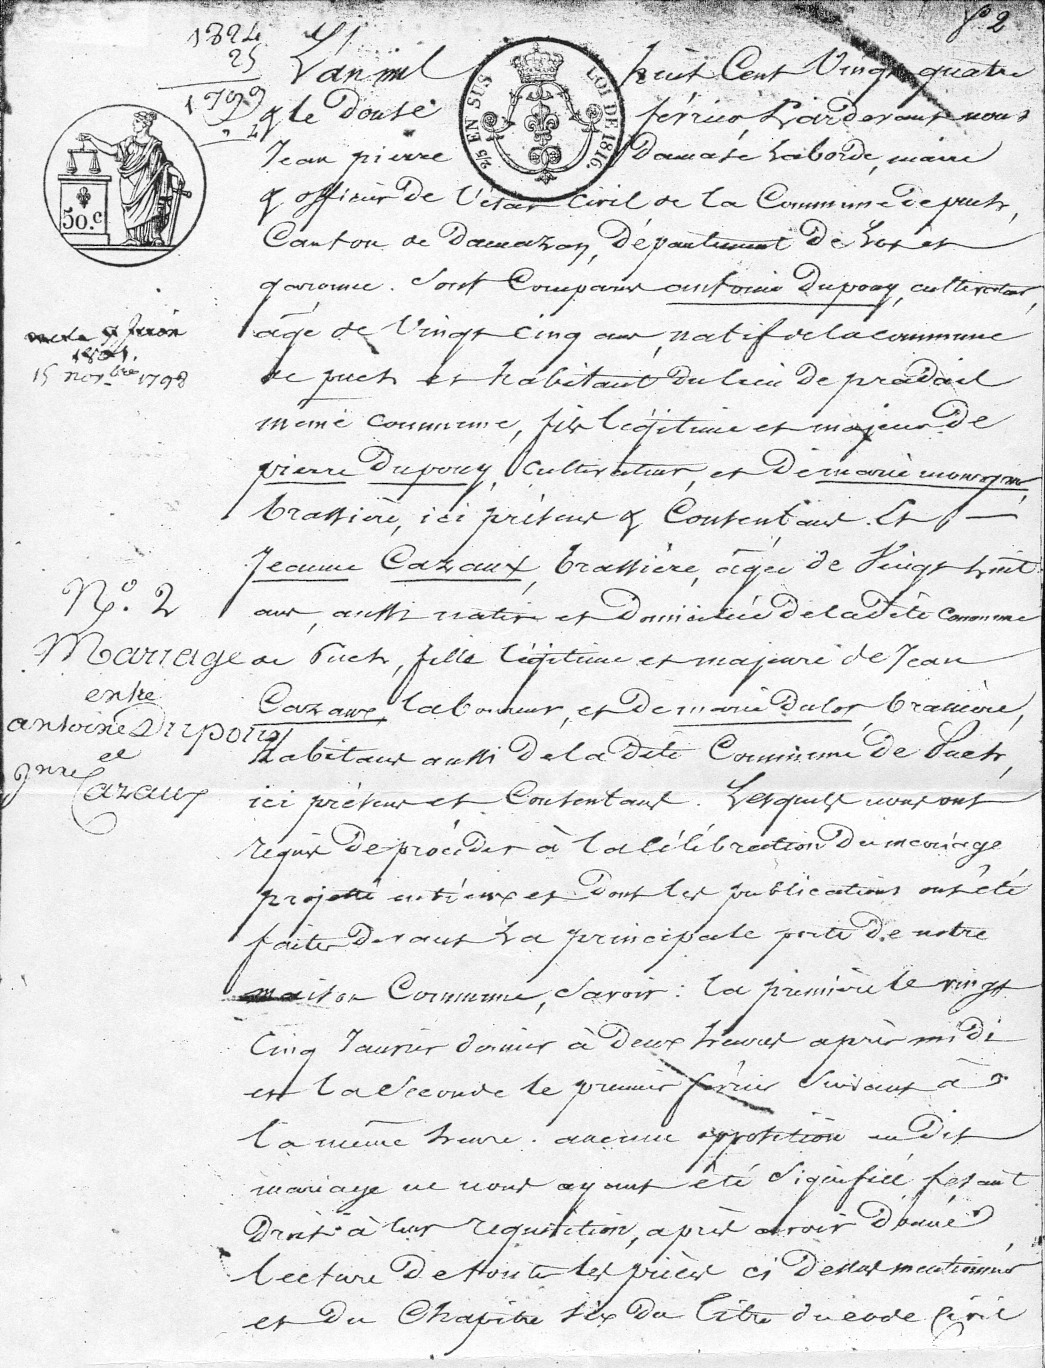 f° 2
1824
25
1799
2/5 EN SUS
LOI DE 1816.
50.c
L'an mil huit Cent Vingt quatre
& le Douse février, Pardevant nous
Jean pierre Damase Laborde, maire
& officier De l'état Civil de la Commune de puch,
Canton de Damazan, Département De Lot et
garonne. Sont Comparus antoine Dupouy, cultivateur,
âge de Vingt cinq ans, natif de la commune
de puch et habitant Du lieu De pradail
meme commune, fils légitime et majeur De
pierre Dupouy, Cultivateur, et De marie
brassière, ici présens & Consentans. Et
Jeanne Cazaux, brassière, âgée de Vingt huit
ans, aussi native et Domiciliée De la Dite Commune
de Puch, fille légitime et majeure de Jean
Cazaux, laboureur, et De marie Dulor, brassière,
habitans aussi De la dite Commune De Puch,
ici présens et Consentans. Lesquels nous ont
requis De procéder à la Célébration Du mariage
projetté entr'eux et Dont les publications ont été
faites Devant La principale porte De notre
maison Commune, Savoir : la première le vingt
Cinq Janvier dernier à Deux heures après midi
et la Seconde le premier février Suivant à
la même heure. aucune opposition au Dit
mariage ne nous ayant été Signifiée fesant
Droit à leur requisition, après avoir Donné
lecture De toutes les pièces ci Dessus mentionnés
et Du Chapitre six Du titre du code Civil
15 novbre 1798
N°. 2
Mariage
entre
antoine Dupouy
et
Jnne Cazaux